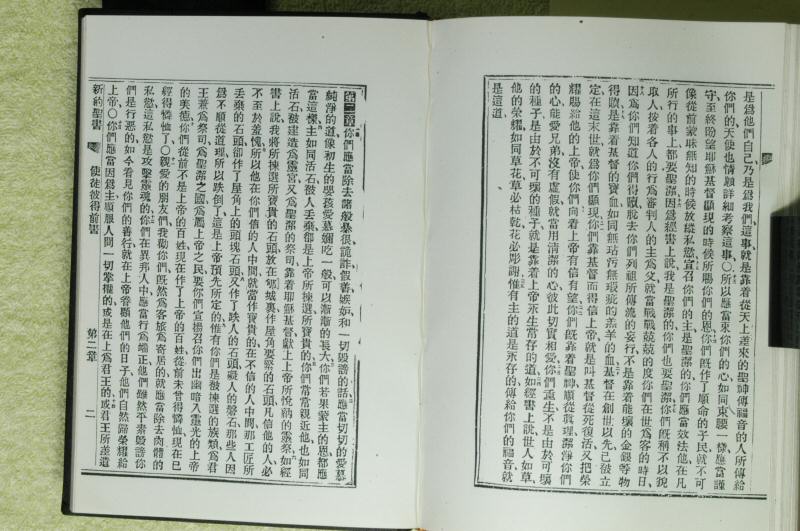 是爲他們自己乃是爲我們這事就是靠着從天上差來的聖神傳福音的人所傳給
你們的天使也情願詳細考察這事○所以應當束你們的心如同束腰一樣應當謹
守至終盼望耶穌基督顯現的時候所賜你們的恩你們旣作了順命的子民就不可
像從前蒙昧無知的時候放縱私慾宣召你們的主是聖潔的你們應當效法他在凡
所行的事上都要聖潔因爲經書上說我是聖潔的你們也要聖潔你們旣稱不以貌
取人按着各人的行爲審判人的主爲父就當戰戰兢兢的度你們在世爲客的時日
因爲你們知道你們得贖脫去你們列祖所傳流的妄行不是靠着能壞的金銀等物
得贖是靠着基督的寶血如同無玷污無瑕疵的羔羊的血基督在創世以先已被立
定在這末世就爲你們顯現你們靠基督而得信上帝就是叫基督從死復活又把榮
耀賜給他的上帝使你們向着上帝有信有望你們旣靠着聖神順從眞理潔淨你們
的心能愛兄弟沒有虛假就當用清潔的心彼此切實相愛你們重生不是由於可壞
的種子是由於不可壞的種子就是靠着上帝永生常存的道如經書上說世人如草
他的榮耀如同草花草必枯乾花必彫謝惟有主的道是永存的傳給你們的福音就
是這道
第二章你們應當除去諸般暴很詭詐假善嫉妬和一切毀謗的話應當切切的愛慕
純淨的道像初生的嬰孩愛慕嬭吃一般可以漸漸的長大你們若果蒙主的恩都應
當這樣主如同活石被人丟棄卻是上帝所揀選所寶貴的你們常常親近他也如同
活石被建造爲靈宮又爲聖潔的祭司靠着耶穌基督獻上上帝所悅納的靈祭如經
書上說我將所揀選所寶貴的石頭放在郇城裏作屋角要緊的石頭凡信他的人必
不至於羞愧所以他在你們信的人中間就當作寶貴的在不信的人中間那工匠所
丟棄的石頭卻作了屋角上的頭塊石頭又作了跌人的石頭礙人的磐石那些人因
爲不順從道理所以跌倒了這是上帝預先所定的惟有你們是被揀選的族類爲君
王兼爲祭司爲聖潔之國爲屬上帝之民要你們宣揚召你們出幽暗入靈光的上帝
的美德你們從前不是上帝的百姓現在作了上帝的百姓從前未曾得憐恤現在已
經得憐恤了○親愛的朋友們我勸你們旣然爲客旅爲寄居的就應當除去肉體的
私慾這私慾是攻擊靈魂的你們在異邦人中應當行爲端正他們雖然平素毀謗你
們是行惡的如今看見你們的善行就在上帝眷顧他們的日子他們自然歸榮耀給
上帝○你們應當因爲主順服人間一切掌權的或是在上爲君王的或君王所差遣
新約聖書 使徒彼得前書 第二章 二